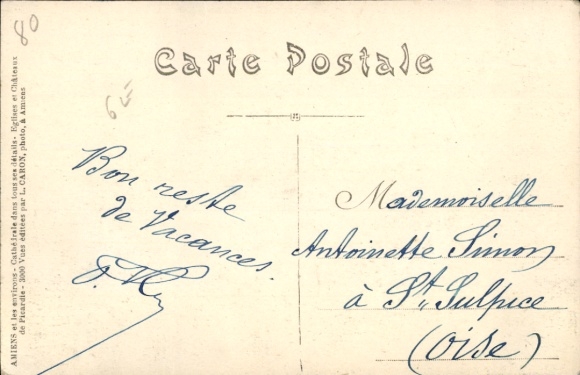 80
Carte Postale
6
AMIENS et les environs - Cathédrale dans tous ses détails - Eglises et Châteaux
de Picardie - 3000 Vues éditées par L. CARON, photo, à Amiens
Bon reste
de Vacances.
Mademoiselle
Antoinette Simon
à St. Sulpice
(Oise)